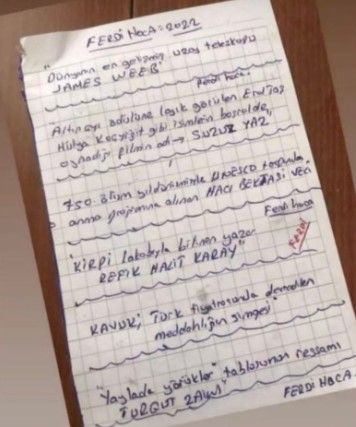 FERDİ HOCA: 2022
"Dünyanın en gelişmiş uzay teleskopu
JAMES WEEB"
Ferdi hoca.
Altın ayı ödülüne layık görülen Erol Taş
Hülya Koçyiğit gibi isimlerin başrolde
oynadığı filmin adı → SUSUZ YAZ
750. ölüm yıldönümünde UNESCO tarafından
anma programına alınan HACI BEKTAŞİ VELİ
Ferdi hoca
"KİRPİ lakabıyla bilinen yazar
REFİK HALİT KARAY"
FERDİ
KAVUK; Türk tiyatrosunda
meddahlığın simgesi
"Yaylada yörükler" tablosunun ressamı
TURGUT ZAİM"
FERDİ HOCA.